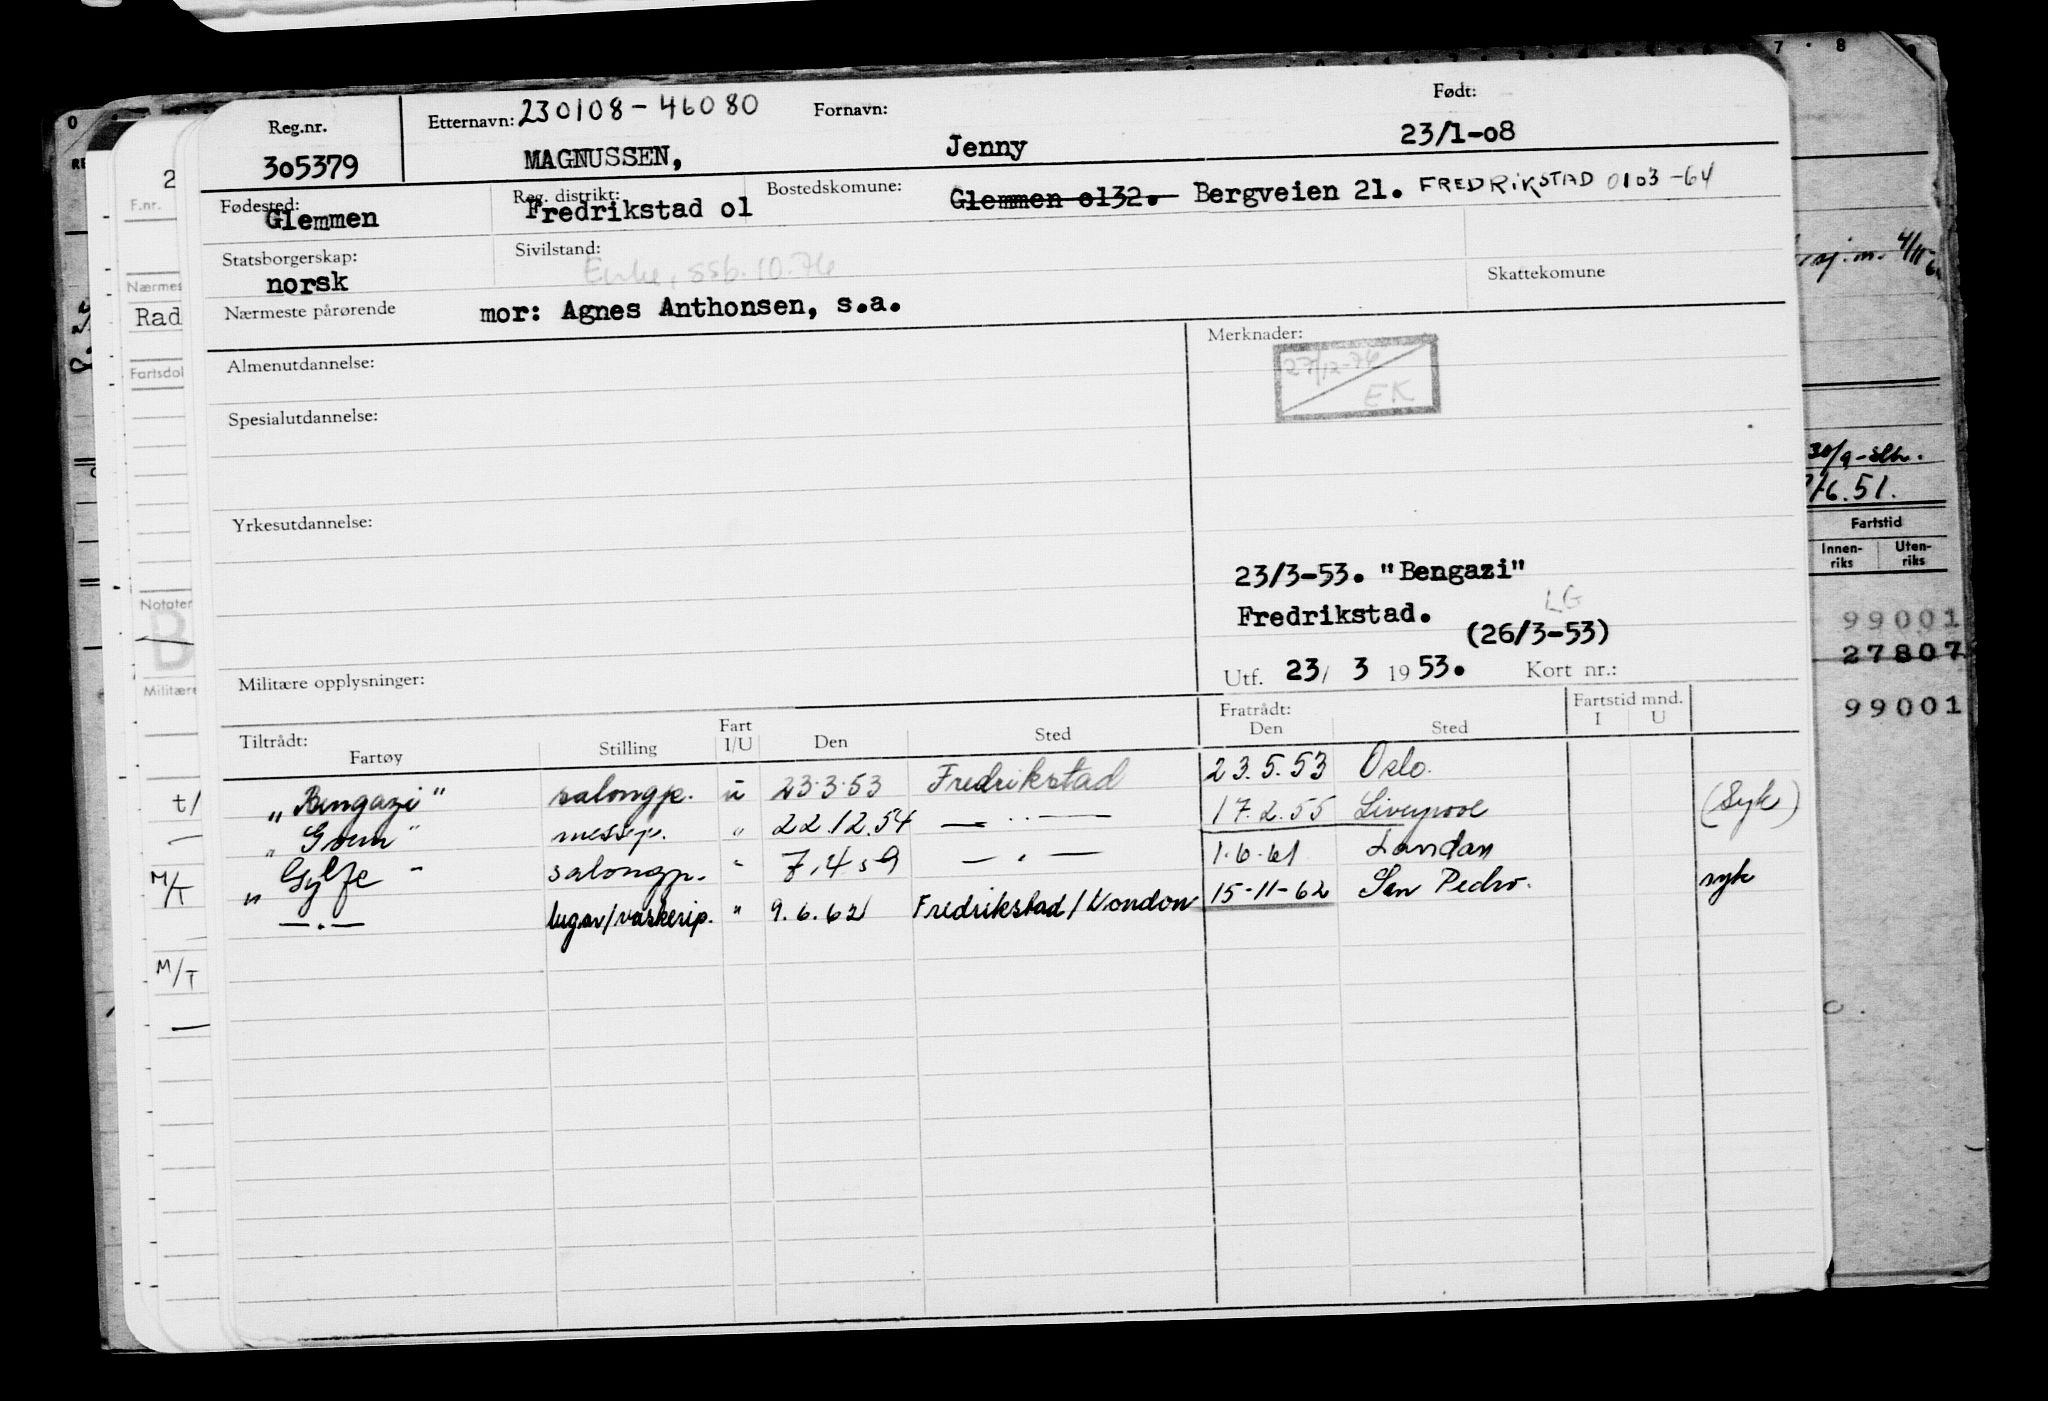 Reg.nr. Etternavn: 230108-46080 Fornavn: Født:
305379 MAGNUSSEN, Jenny 23/1-08
Fødested: Reg. distrikt: Bostedskomune:
Glemmen Fredrikstad ol Glemmen o132. Bergveien 21. FREDRIKSTAD 0103-64
Statsborgerskap: Sivilstand: Skattekomune
norsk Enke, SSB. 10.76
Nærmeste pårørende mor: Agnes Anthonsen, s.a.
Almenutdannelse: Merknader:
27/12-76
EK
Spesialutdannelse:
Yrkesutdannelse:
23/3-53. "Bengazi"
LG
Fredrikstad.
(26/3-53)
Militære opplysninger: Utf. 23/ 3 1953. Kort nr.:
Tiltrådt: Fart Fratrådt: Fartstid mnd.
Fartøy Stilling I/U Den Sted Den Sted I U
"Bengazi" salongp. u 23.3.53 Fredrikstad 23.5.53 Oslo.
messp. " 22.12.54 — " — 17.2.55 Liverpool (Syk)
"Gylfe" salongp. " 7.4 59 — " — 1.6.61 London
— " — lugar/vaskerip. " 9.6.62 Fredrikstad/London 15-11-62 San Pedro. syk
2
F.nr.
Nærmes
Rad
Fartsdol
Notater
B
Militære
t/
M/T
M/T
7 8
4/11
30/9
6.51.
Fartstid
Innen-riks Uten-riks
99001
27807
99001